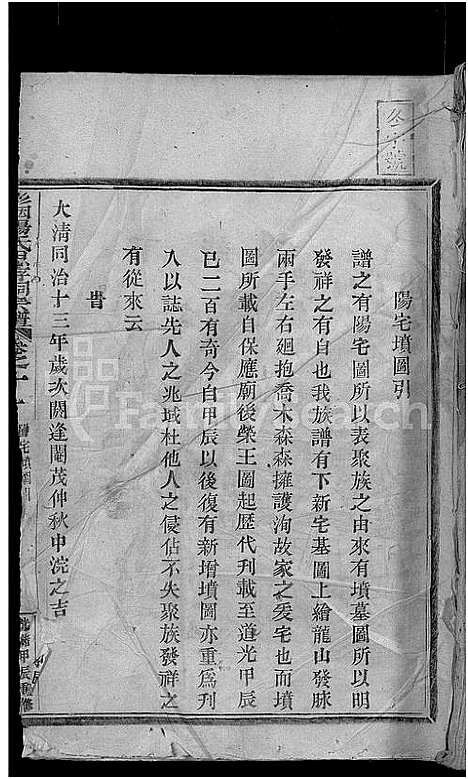 冬字號
陽宅墳圖引
譜之有陽宅圖所以表聚族之由來有墳墓圖所以明
發祥之有自也我族譜有下新宅基圖上繪龍山發脉
兩手左右廻抱喬木森森擁護洵故家之爰宅也而墳
圖所載自保應廟後榮王圖起歷代刋載至道光甲辰
已二百有奇今自甲辰以後復有新增墳圖亦重爲刋
入以誌先人之兆域杜他人之侵佔不失聚族發祥之
有從來云
旹
大清同治十三年歲次閼逢閹茂仲秋中浣之吉
宗譜
卷之十一
陽宅墳圖引
FamilySearch